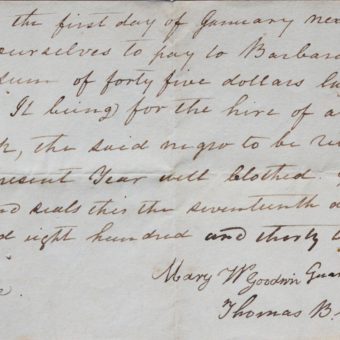 the first day of January ne
ourselves to pay to Barbar
sum of forty five dollars la
It being) for the hire of a
the said negro to be re
present Year well Clothed.
nd seals this the seventeenth d
d eight hundred and thirty
Mary W Goodwin Guar
Thomas B.